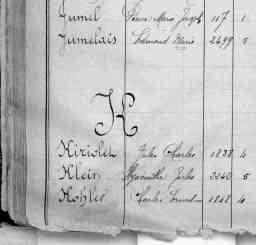 Jumel Pierre Marie Joseph 117 1
Jumelais Edmond Marie 2499 5
K
Kiriolet Jules Charles 1838 4
Klein Hyacinthe Jules 3040 5
Kohler Charles 1848 4